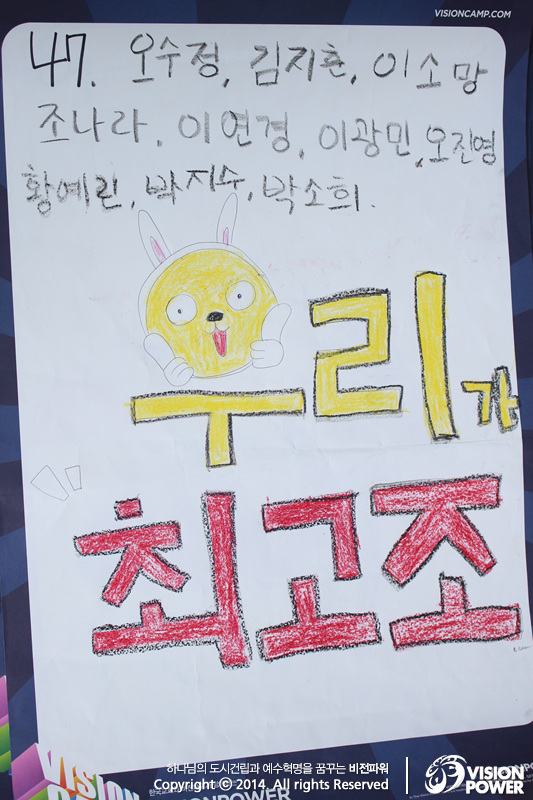 VISIONCAMP.COM
47. 오수정, 김지훈, 이소망
조나라, 이연경, 이광민, 오진영
황예린, 박지수, 박소희.
우리가
최고조
하나님의 도시건립과 예수혁명을 꿈꾸는 비전파워
Copyright ⓒ 2014 All rights Reserved
VISION POWER
VISION